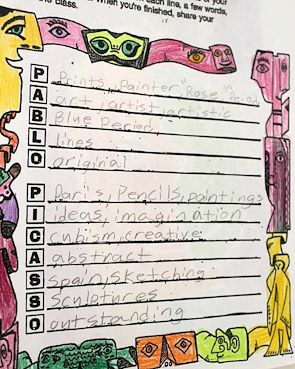 each line, a few words,
the class. When you're finished, share your
P Prints, Painter "Rose" Period
A art, artist, artistic
B Blue Period,
L lines
O original
P Paris, Pencils, paintings
I ideas, imagination
C cubism, creative
A abstract
S spain, sketching
S sculptures
O outstanding